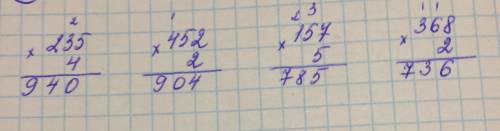 2 1 2 3 1 1
× 235 × 452 × 157 × 368
4 2 5 2
940 904 785 736